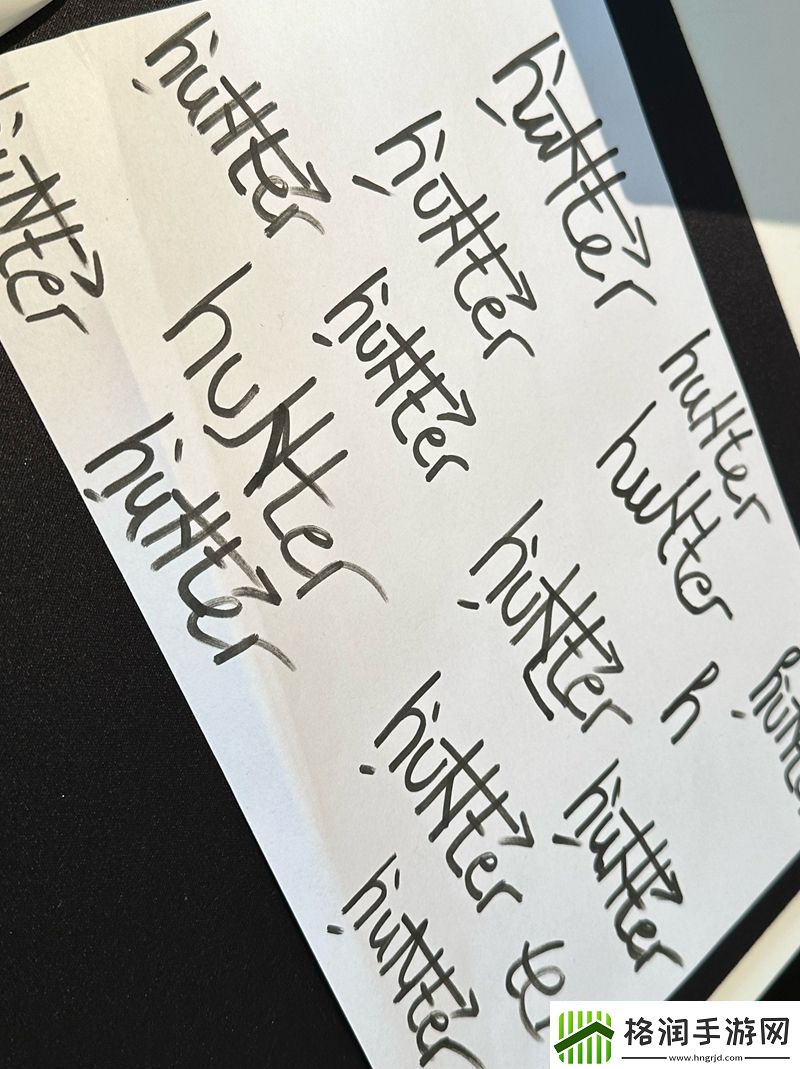 hunter
hunter
hunter
hunter
hunter
hunter
hunter
hunter
hunter
hunter
h
hunter
hunter
hunter
te
格润手游网
www.hngrjd.com